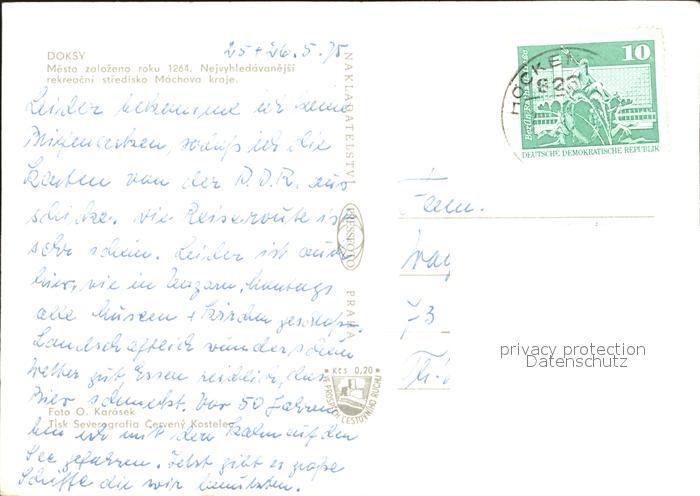 25 + 26.5.75
DOKSY
Město založeno roku 1264. Nejvyhledávanější
rekreační středisko Máchova kraje.
Leider bekommen wir keine
sodaß wir die
Karten von der D.D.R. aus
schicken. Die Reiseroute ist
sehr schön. Leider ist auch
hier, wie in Ungarn, Montags
alle Museen + Kirchen geschloss.
Landschaftlich wunderschön
Wetter gut, Essen reichlich, das
Bier schmeckt. Vor 50 Jahren
bin ich mit dem Kahn auf den
See gefahren. Jetzt gibt es große
Schiffe die wir benützten.
Foto O. Karásek
Tisk Severografia Červený Kostelec
NAKLADATELSTVÍ
PRESSFOTO
PRAHA
Kčs 0,20
VE PROSPĚCH CESTOVNÍHO RUCHU
HÖCKEN
820
10
DEUTSCHE DEMOKRATISCHE REPUBLIK
Fam.
73
privacy protection
Datenschutz